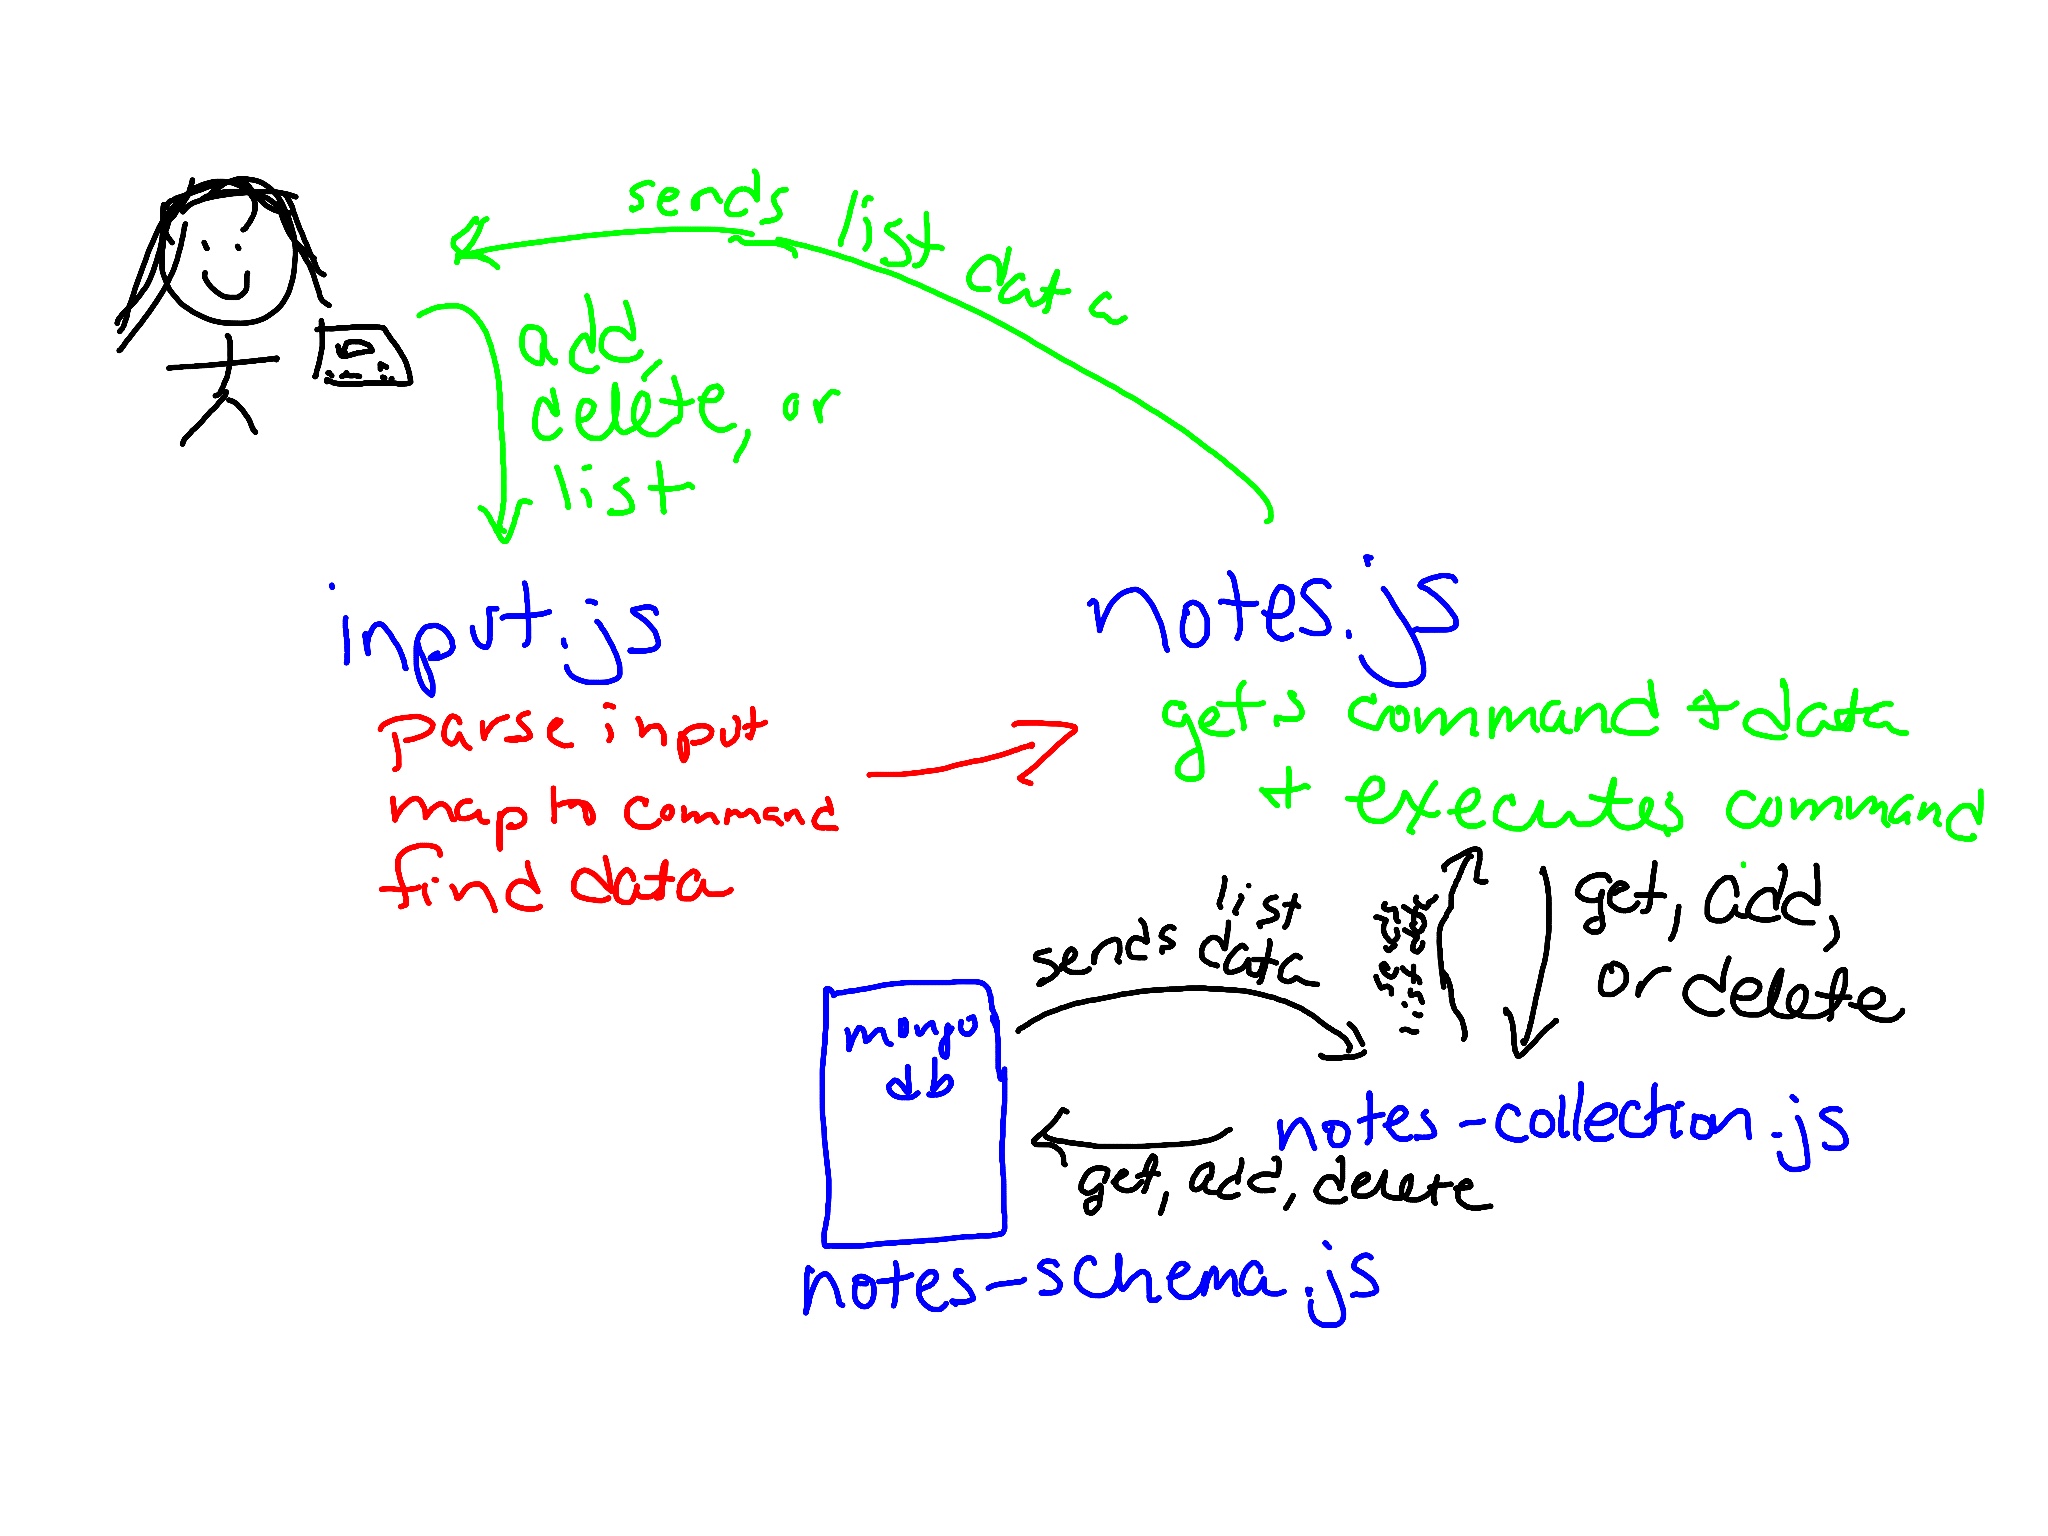 sends list data
add,
delete, or
list
input.js
parse input
map to command
find data
notes.js
gets command + data
+ executes command
get, add,
or delete
list
sends data
list data
mongo
db
notes-collection.js
get, add, delete
notes-schema.js